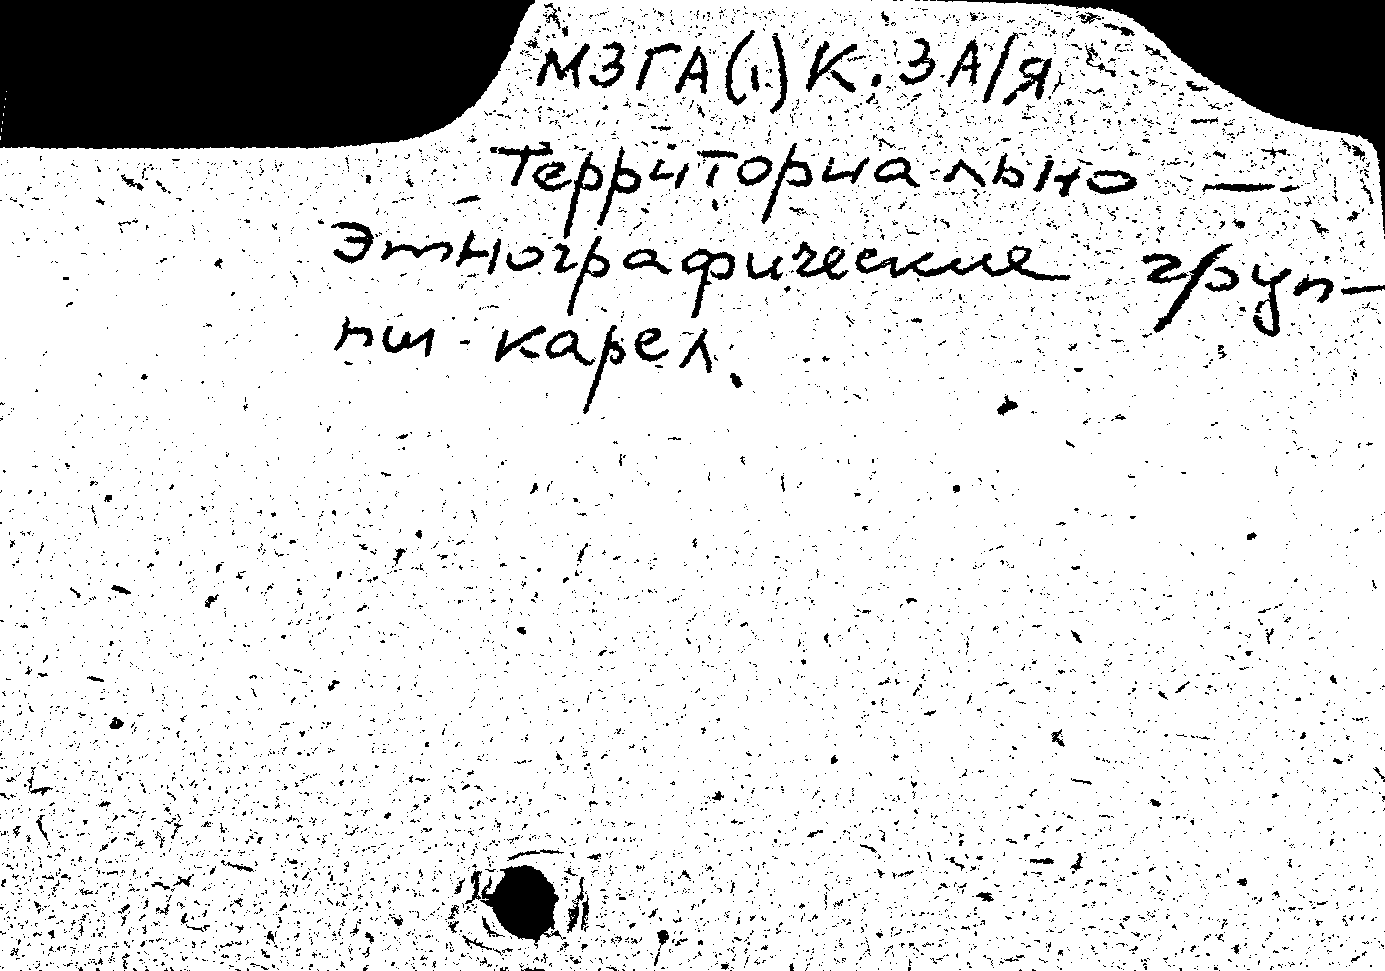 МЗГА(1)К.ЗА/Я
Территориально —
этнографические груп-
пы карел.